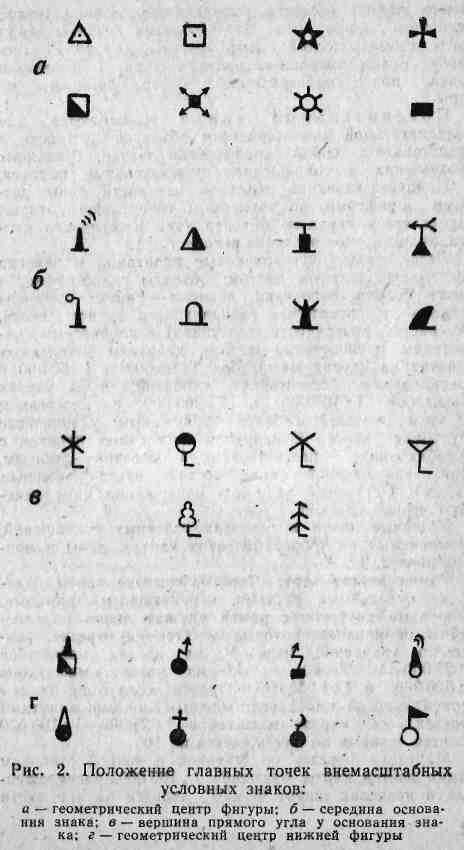 а
б
в
г
Рис. 2. Положение главных точек внемасштабных
условных знаков:
а — геометрический центр фигуры; б — середина основа-
ния знака; в — вершина прямого угла у основания зна-
ка; г — геометрический центр нижней фигуры